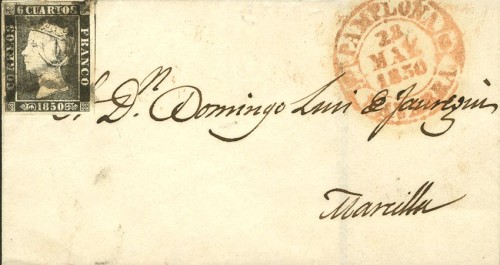 6 CUARTOS
CORREOS
FRANCO
1850
PAMPLONA
28
MAY
1850
S. Dn. Domingo Luis de Jauregui
Marcilla